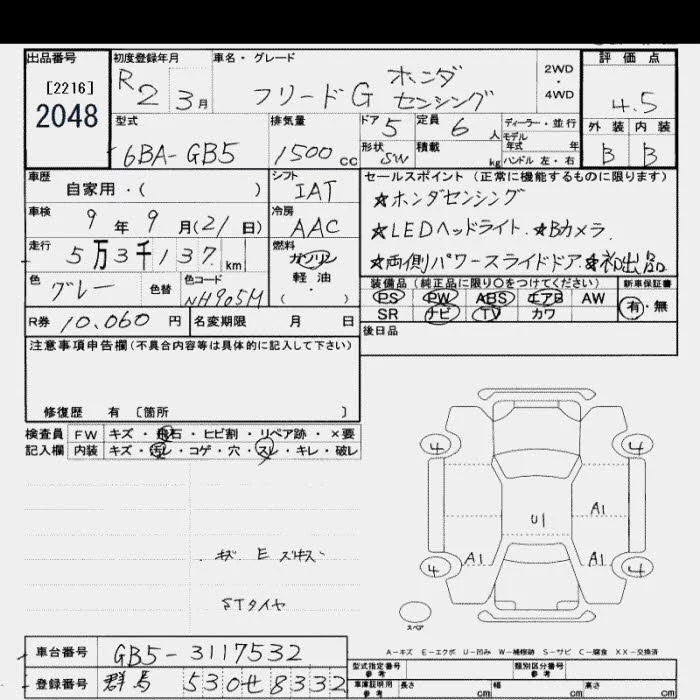 出品番号 初度登録年月 車名・グレード 評価点
[2216] R2 3月 フリードG ホンダセンシング 2WD・4WD 4.5
2048
型式 排気量 ドア 5 定員 6人 ディーラー・並行 外装 内装
6BA-GB5 1500cc 形状 SW 積載 kg モデル年式 年 B B
ハンドル 左・右
車歴 シフト セールスポイント (正常に機能するものに限ります)
自家用・( ) IAT ☆ホンダセンシング
車検 冷房
9年9月(21日) AAC ☆LEDヘッドライト.☆Bカメラ.
走行 燃料
5万3千137km ガソリン ☆両側パワースライドドア.☆初出品
色 色替 色コード 軽油 装備品 (純正品に限り○をつけてください) 新車保証書
グレー NH905M ・( ) PS PW ABS エアB AW 有・無
SR ナビ TV カワ
R券 10.060円 名変期限 月 日 後日品
注意事項申告欄 (不具合内容等は具体的に記入して下さい)
修復歴 有 〔箇所 〕
検査員 FW キズ・飛石・ヒビ割・リペア跡・×要
記入欄 内装 キズ・汚レ・コゲ・穴・スレ・キレ・破レ
4 4
A1
U1
A1 A1
4 4
キズ E ズキス
STタイヤ
スペア
A-キズ E-エクボ U-凹み W-補修跡 S-サビ C-腐食 XX-交換済
車台番号 GB5-3117532 型式指定番号 参考 類別区分番号 参考
登録番号 群馬 530せ8332 車庫証明用 参考 長さ cm 幅 cm 高さ cm